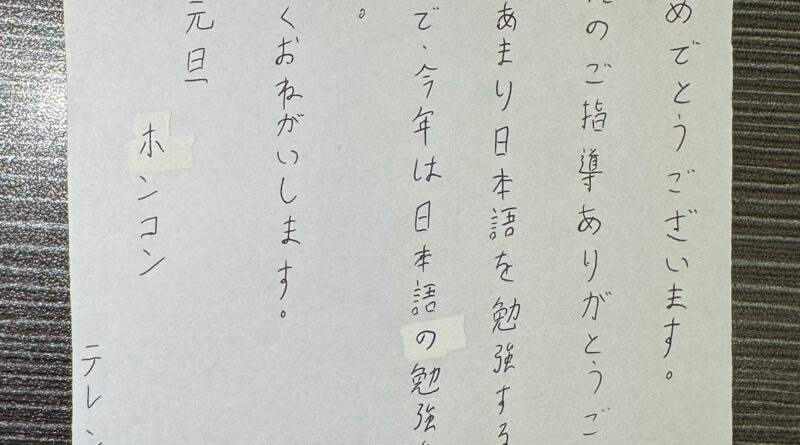 めでとうございます。
のご指導ありがとうご
あまり日本語を勉強する
で、今年は日本語の勉強
。
くおねがいします。
元旦
ホンコン
テレン